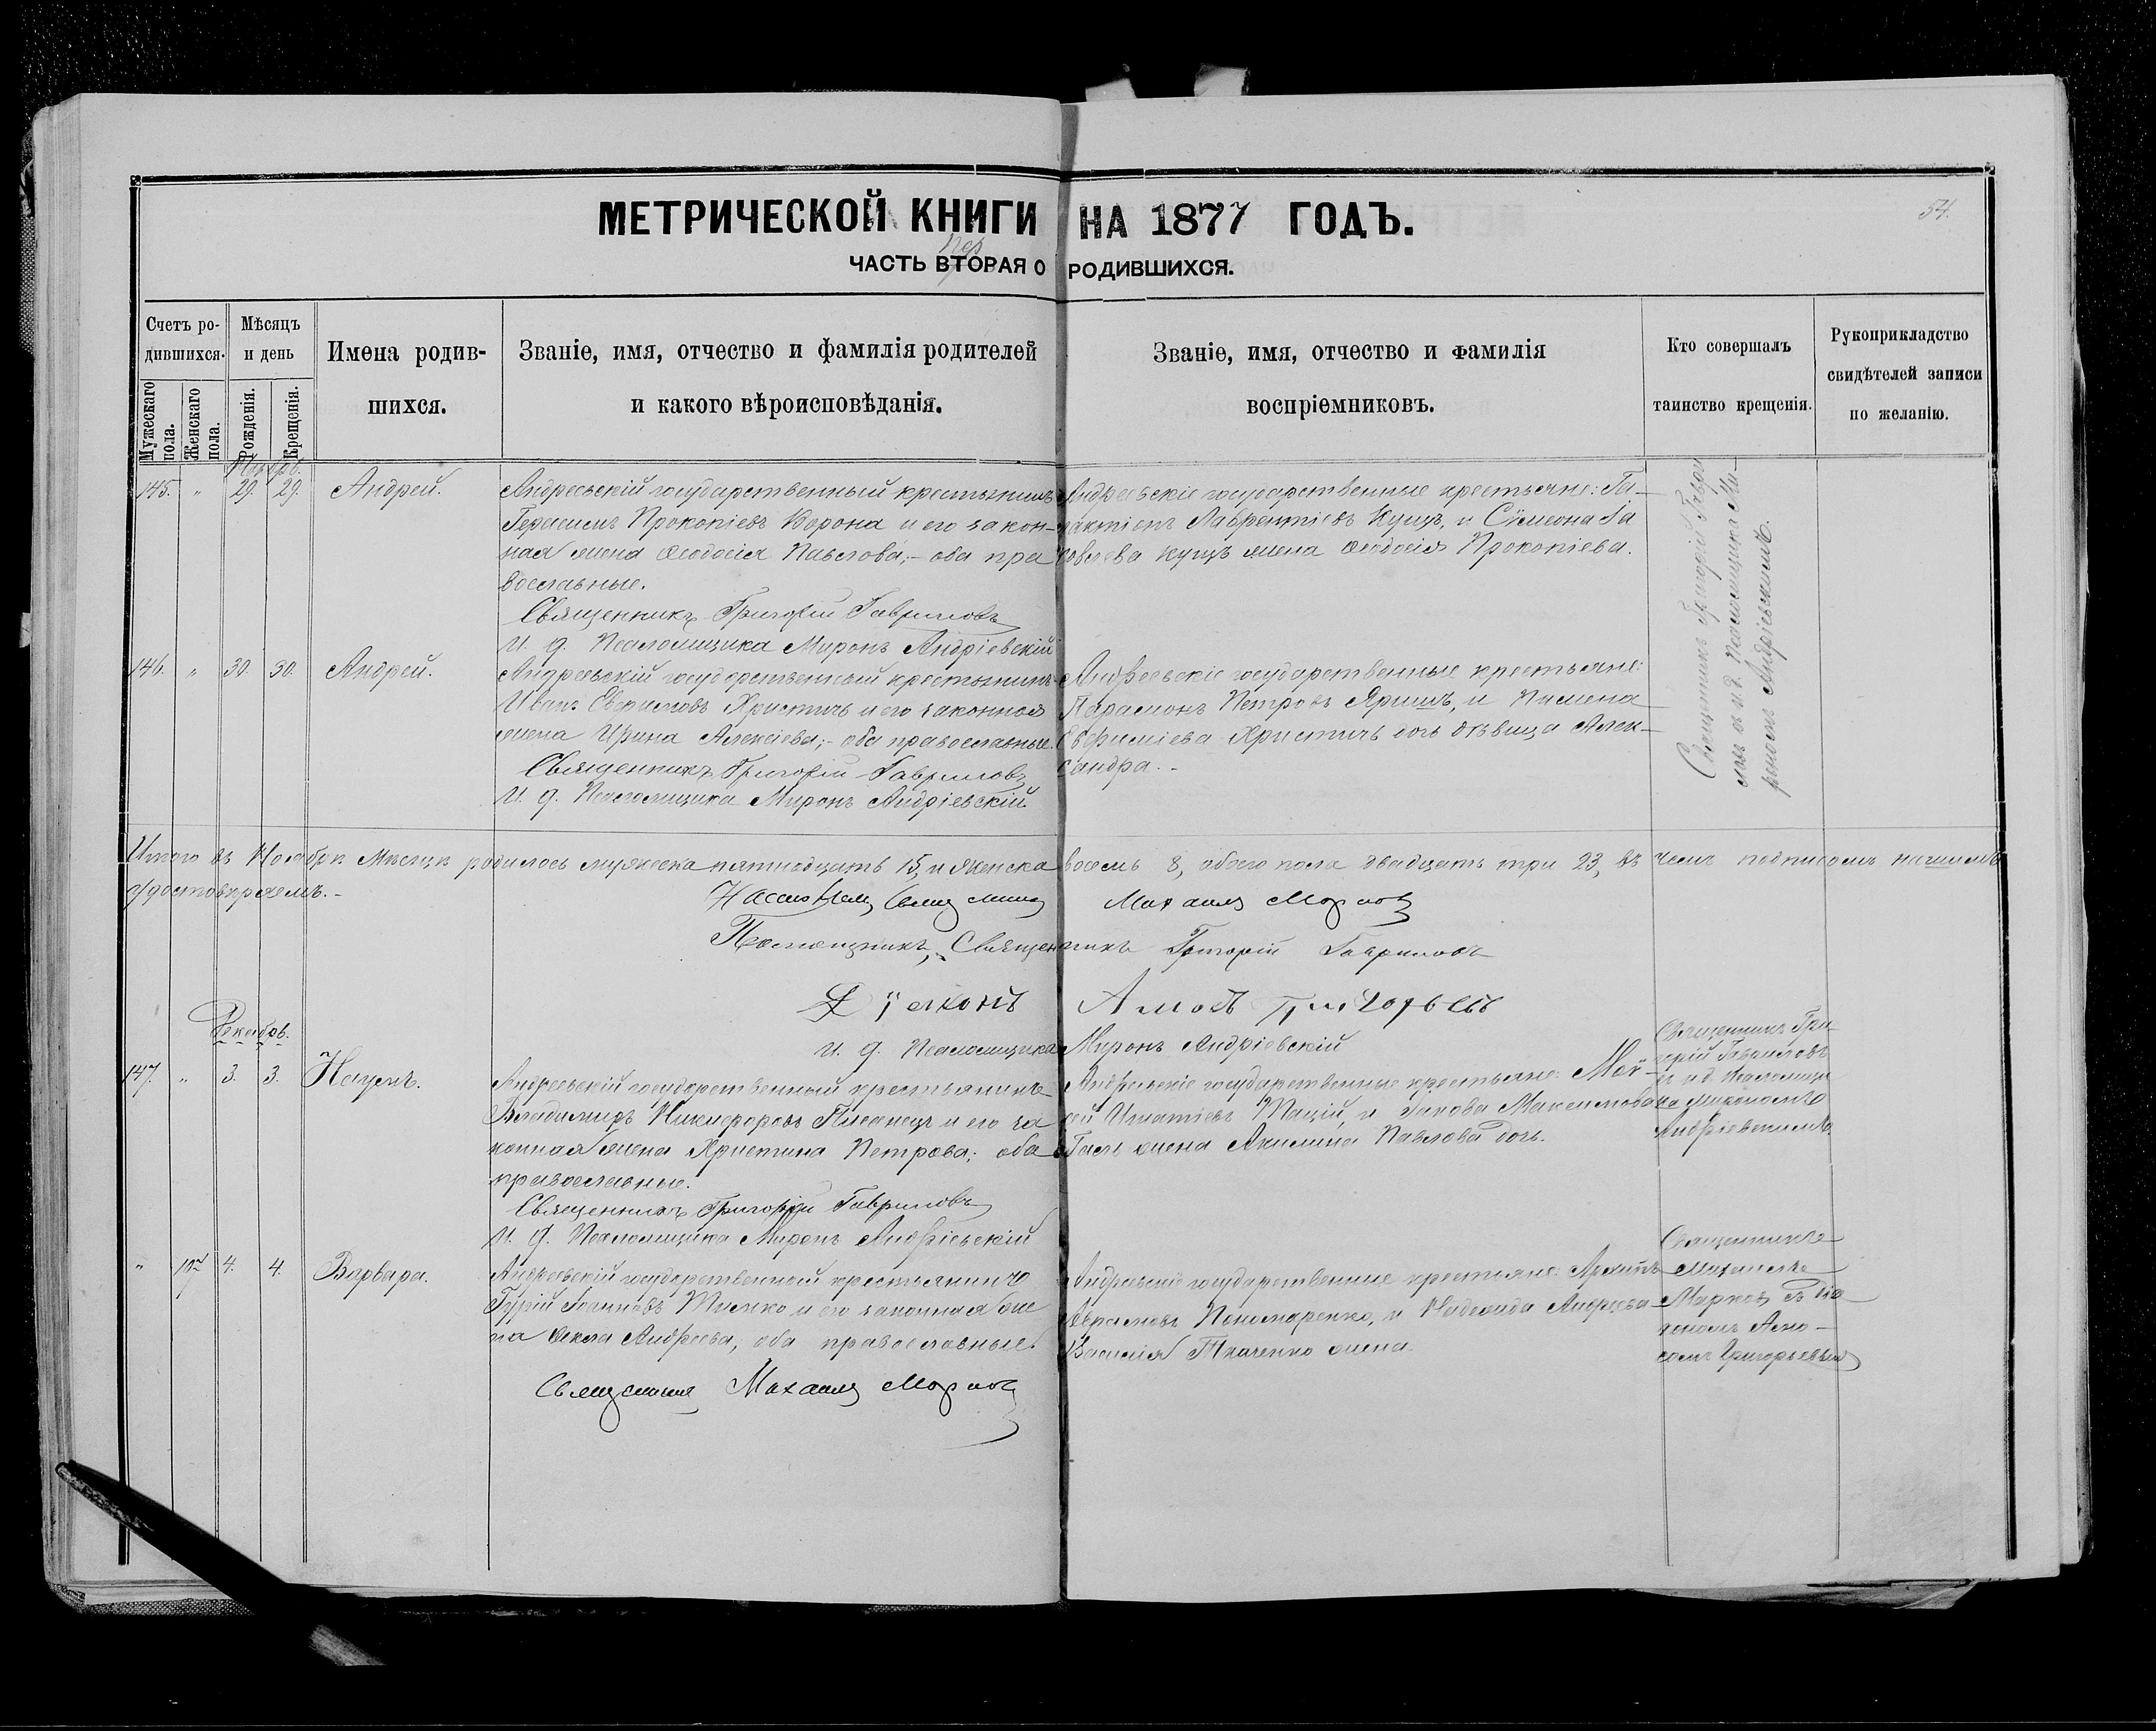 54.
МЕТРИЧЕСКОЙ КНИГИ НА 1877 ГОДЪ.
пер
ЧАСТЬ ВТОРАЯ О РОДИВШИХСЯ.
Счетъ ро-
дившихся.
Мужескаго пола.
Женскаго пола.
Мѣсяцъ
и день
Рожденія.
Крещенія.
Имена родив-
шихся.
Званіе, имя, отчество и фамилія родителей
и какого вѣроисповѣданія.
Званіе, имя, отчество и фамилія
воспріемниковъ.
Кто совершалъ
таинство крещенія.
Рукоприкладство
свидѣтелей записи
по желанію.
Ноябрь.
145. " 29. 29. Андрей.
Андреевскій государственный крестьянинъ
Герасимъ Прокопіевъ Ворона и его закон-
ная жена Ѳеодосія Павлова;- оба пра
вославные.
Священникъ Григорій Гавриловъ
И. д. Псаломщика Миронъ Андріевскій
Андреевскіе государственные крестьяне: Га-
лактіонъ Лаврентіевъ Кущъ, и Сѵмеона Са
вельева Кущъ жена Ѳеодосія Прокопіева.
Священникъ Григорій Гаври
ловъ съ и д. Псаломщика Ми-
рономъ Андріевскимъ.
146. " 30. 30. Андрей.
Андреевскій государственный крестьянинъ
Иванъ Евѳимовъ Христичъ и его законная
жена Ирина Алексіева;- оба православные.
Священникъ Григорій Гавриловъ
И. д. Псаломщика Миронъ Андріевскій
Андреевскіе государственные крестьяне:
Парамонъ Петровъ Яришъ, и Пимена
Евфиміева Христичъ дочь дѣвица Алек-
сандра.-
Итого въ Ноябрѣ мѣсяцѣ родилось мужеска пятнадцать 15, и женска восемь 8, обоего пола двадцать три 23, въ чемъ подписомъ нашимъ
удостовѣряемъ.-
Михаилъ Марков
Помощникъ, Священникъ Григорій Гавриловъ
Діаконъ Амосъ Григорьевъ
И. д. Псаломщика Миронъ Андріевскій
Декабрь.
147. " 3. 3. Наумъ.
Андреевскій государственный крестьянинъ
Владимиръ Никифоровъ Писанецъ и его за
конная жена Христина Петрова; оба
православные.
Священникъ Григорій Гавриловъ
И. д. Псаломщика Миронъ Андріевскій
Андреевскіе государственные крестьяне: Мой-
сей Игнатіевъ Мацій, и Іакова Максимова
жена Акилина Павлова дочь.
Священникъ Гри-
горій Гавриловъ
съ и д. Псаломщи
ка Мирономъ
Андріевскимъ.
" 4. 4. Варвара.
Андреевскій государственный крестьянинъ
Гурій Іоанновъ и его законная же
на Ѳекла Андреева, оба православные.
Священникъ Михаилъ Марков
Андреевскіе государственные крестьяне: Архипъ
Авраамовъ Пономаренко, и Надежда Андреева
Василія Ткаченко жена.
Священникъ
Михаилъ
Марков съ Діа-
кономъ Амо-
сомъ Григорьевымъ